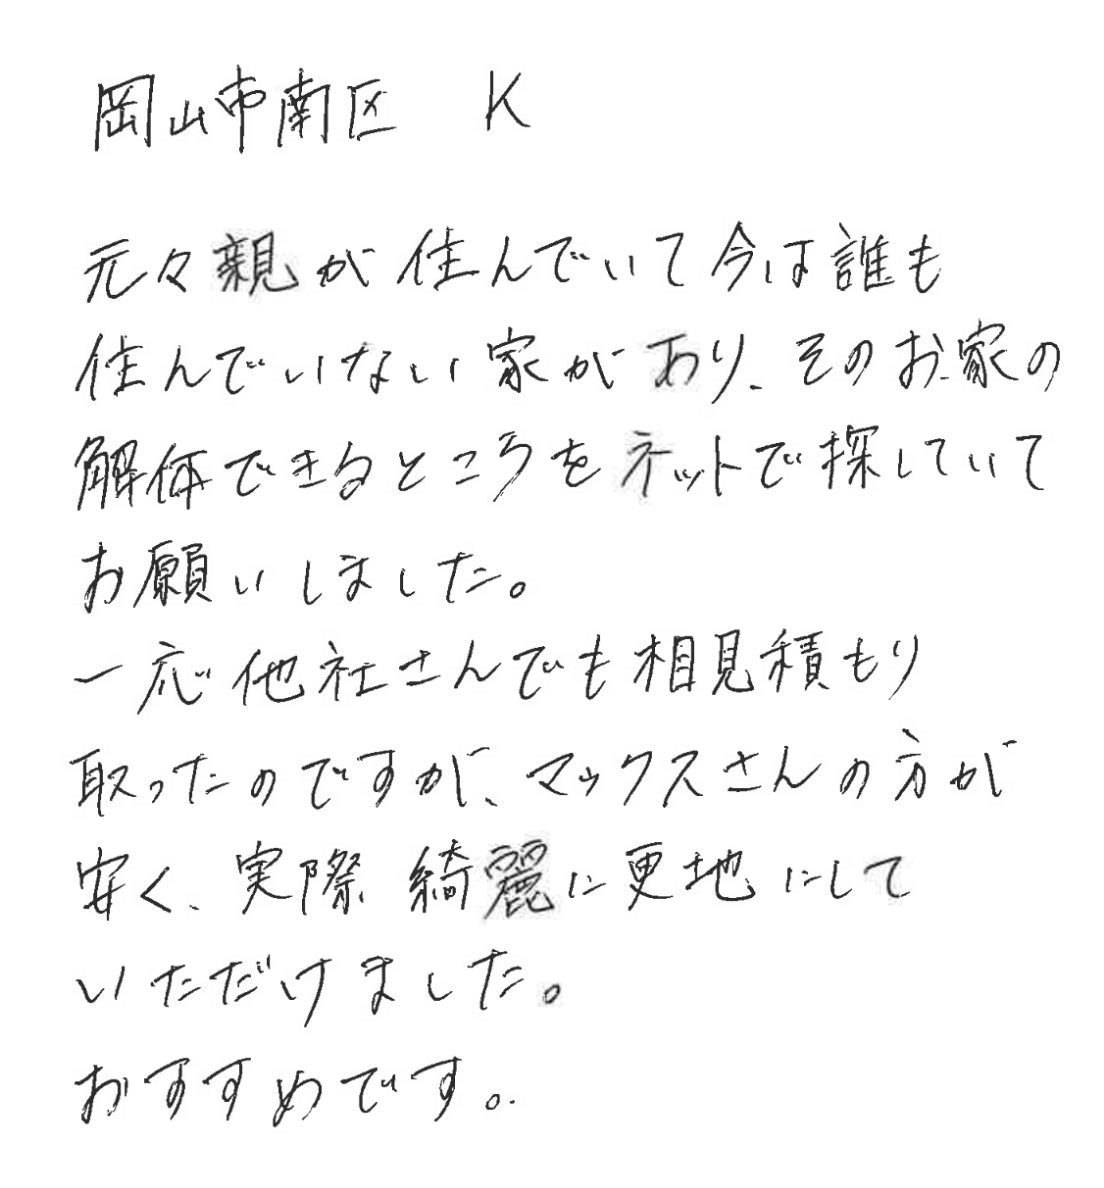 岡山市南区 K
元々親が住んでいて今は誰も
住んでいない家があり、そのお家の
解体できるところをネットで探していて
お願いしました。
一応他社さんでも相見積もり
取ったのですが、マックスさんの方が
安く、実際綺麗に更地にして
いただけました。
おすすめです。